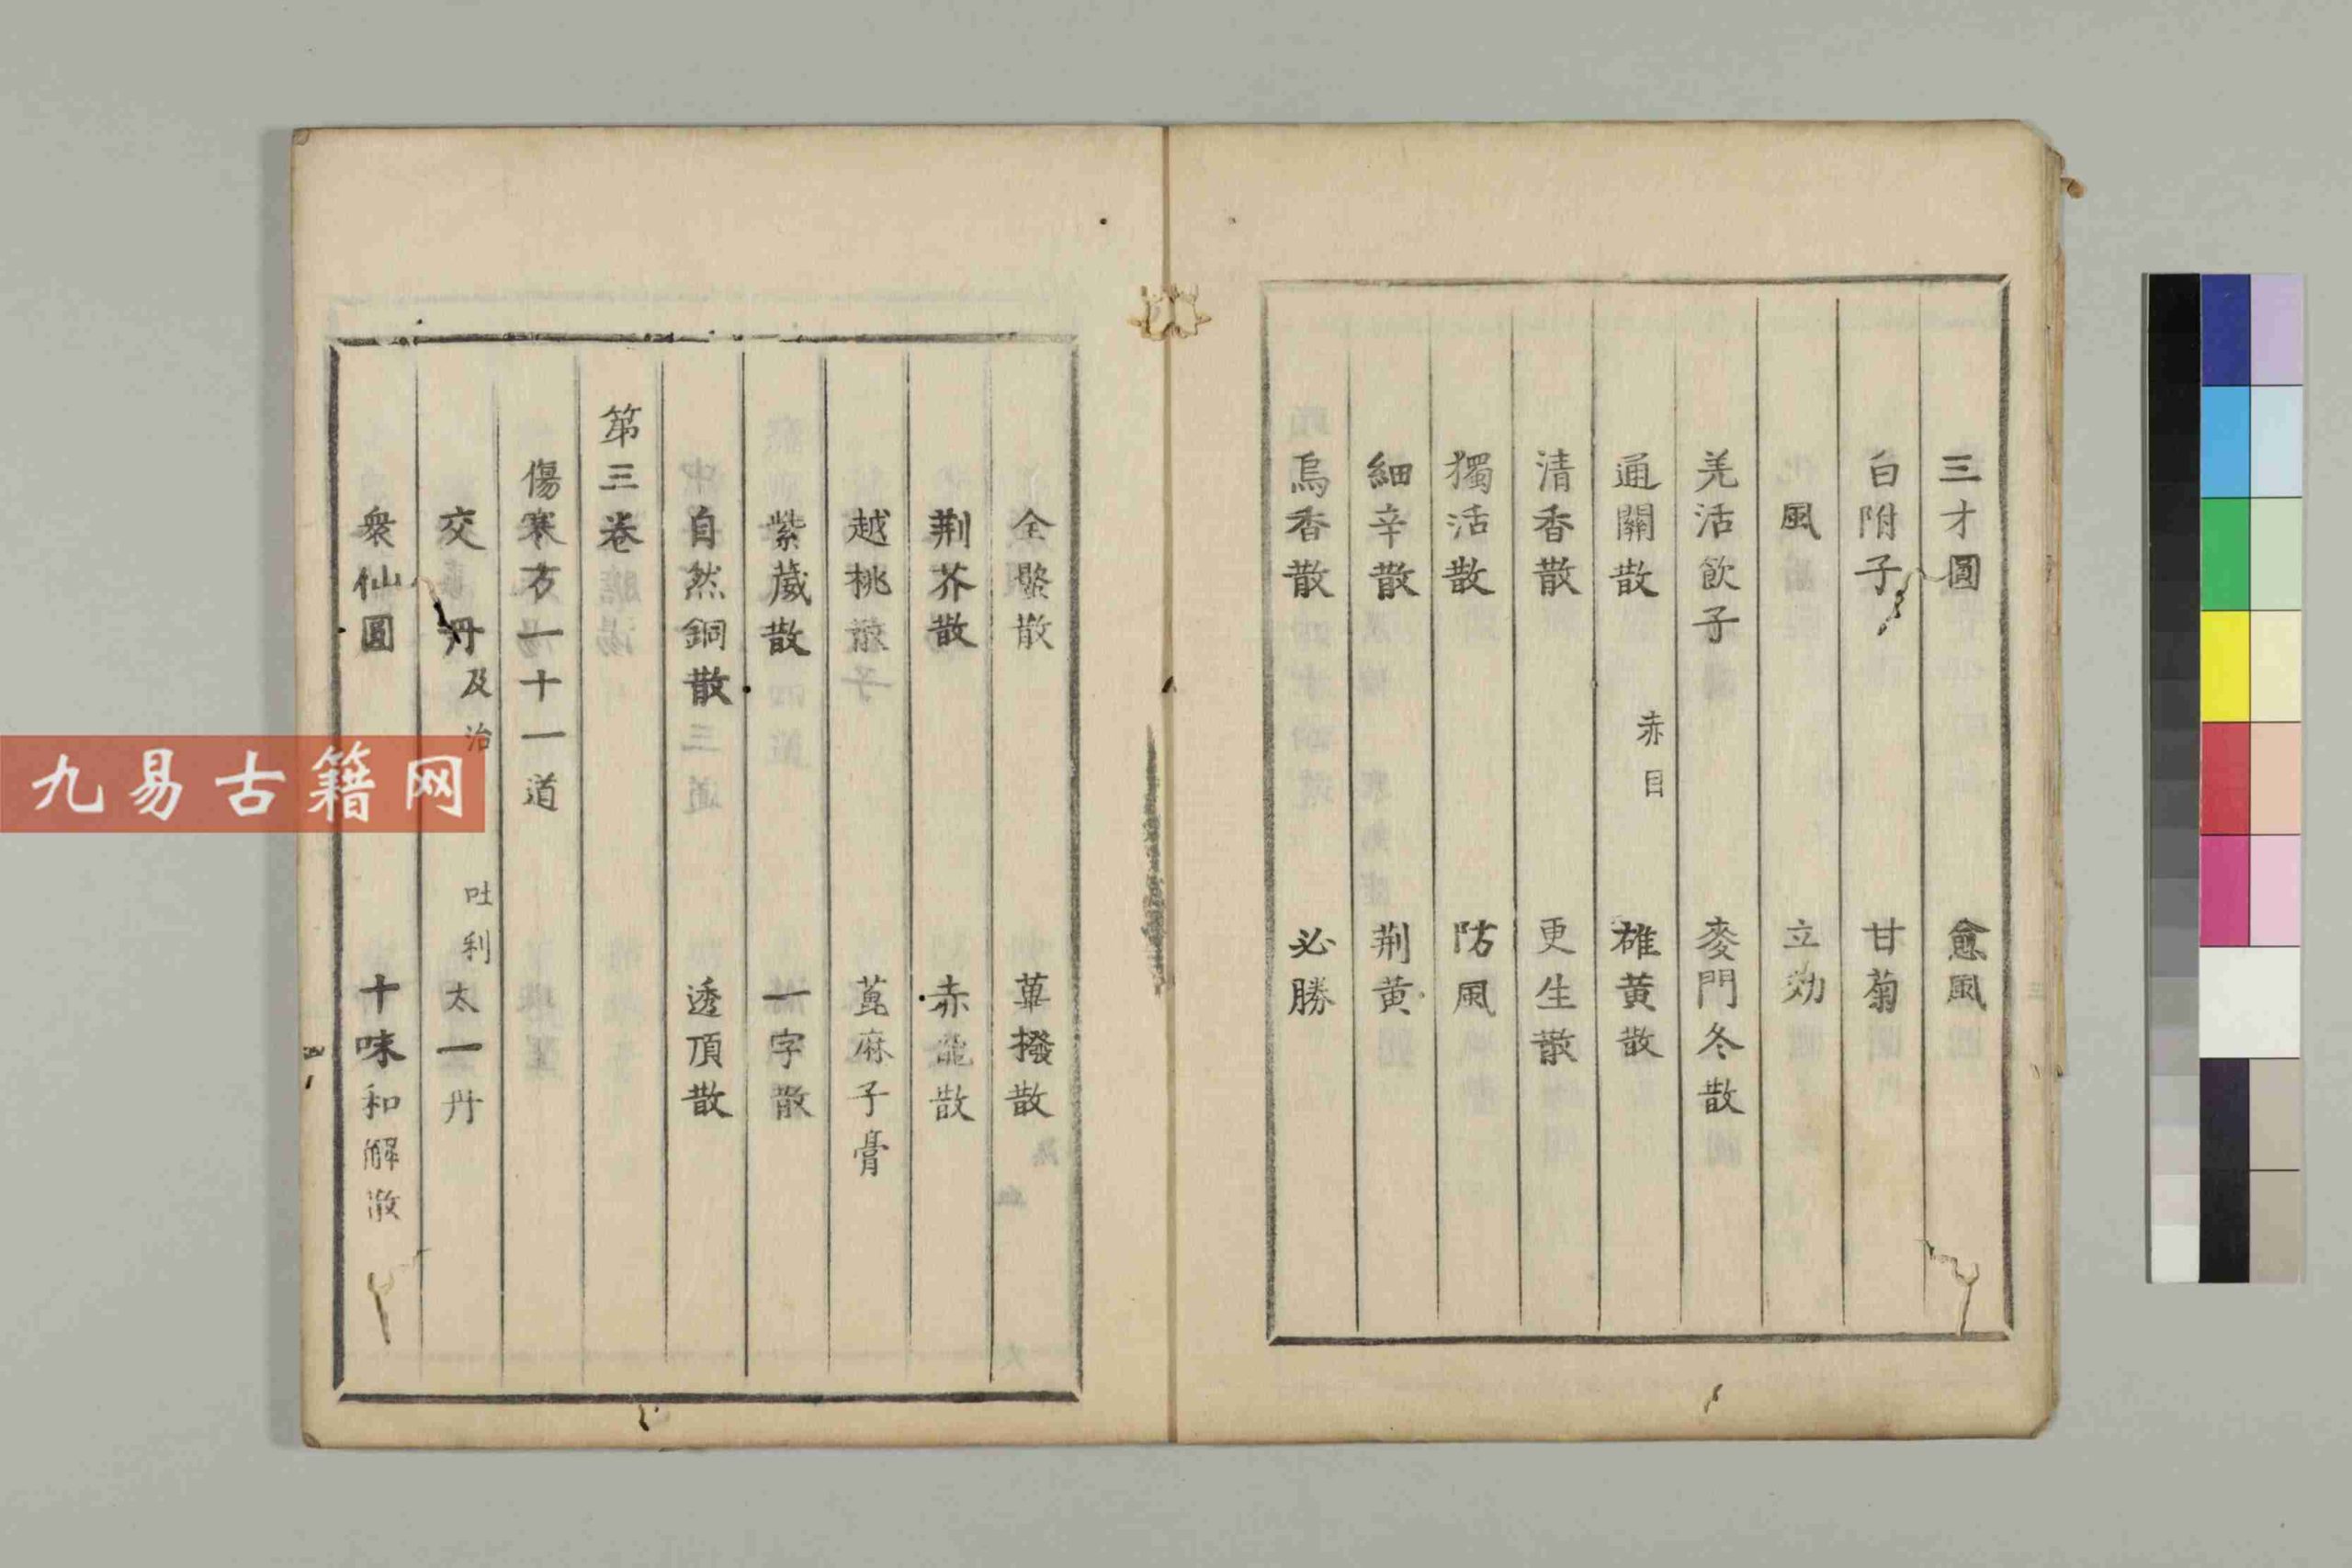 三才圓　愈風
白附子　甘菊
風　立効
羌活飲子　麥門冬散
通關散　赤目　雄黄散
清香散　更生散
獨活散　防風
細辛散　荆黄
烏香散　必勝
全蝎散　蓽撥散
荆芥散　赤龍散
越桃散　萆麻子膏
紫葳散　一字散
自然銅散　透頂散
第三卷
傷寒方一十一道
交　丹　及治　吐利　太一丹
衆仙圓　十味和解散
九易古籍网